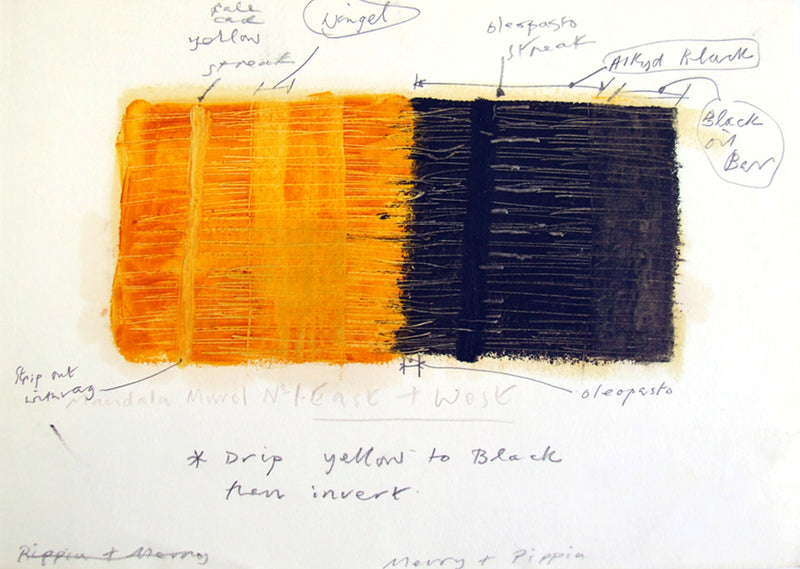 Pale
cad
yellow
streak
Wingel
oleopasto
streak
Alkyd Black
Black
oil
Bar
Strip out
with rag
Mandala Mural No 1. East + West
oleopasto
* Drip yellow to Black
then invert.
Pippin + Merry
Merry + Pippin